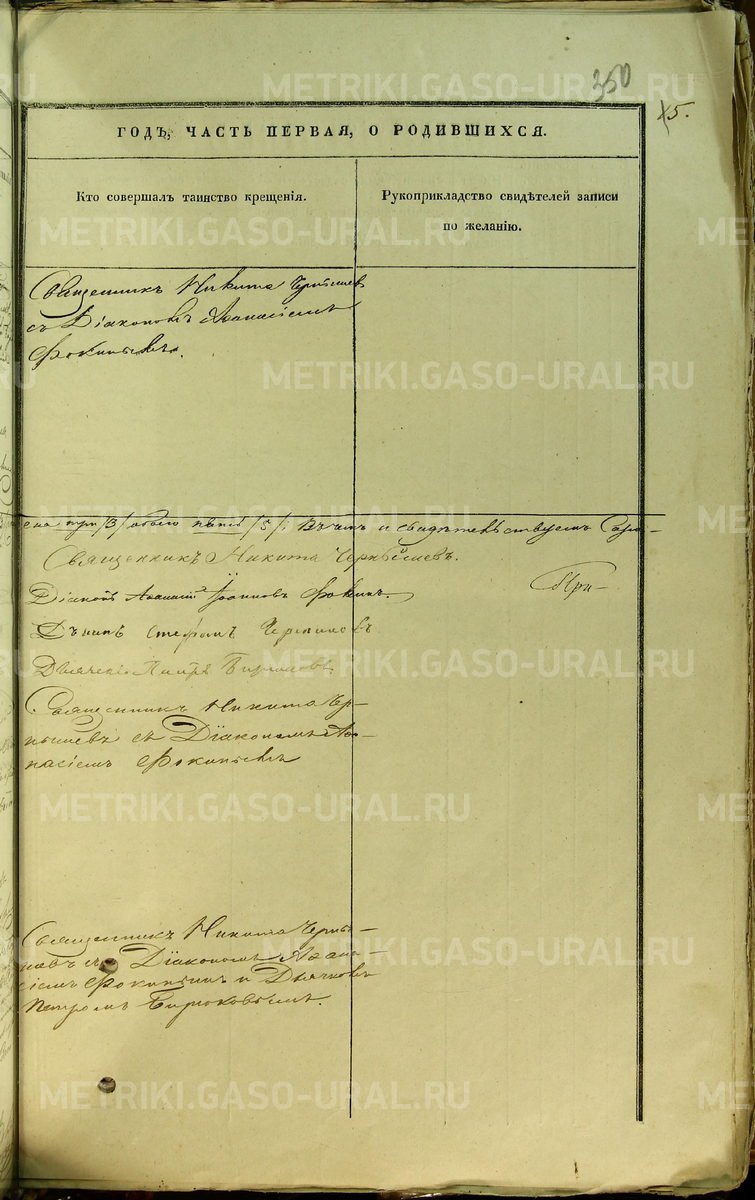 350
15.
ГОДЪ, ЧАСТЬ ПЕРВАЯ, О РОДИВШИХСЯ.
Кто совершалъ таинство крещенія.
Рукоприкладство свидѣтелей записи
по желанію.
Священникъ Никита Чернышев
съ Діакономъ Аѳанасіемъ
Фокинымъ.
три /3/ обоего пять /5/: Въ чемъ и свидѣтельствуемъ
Священникъ Никита Чернышевъ.
Діаконъ Іоанновъ Фокинъ.
Стефанъ
Священникъ Никита Чер-
нышевъ съ Діакономъ Аѳа-
насіемъ Фокинымъ
Священникъ Никита Черны-
шевъ съ Діакономъ Аѳана-
сіемъ Фокинымъ и Дьячковъ
Петромъ Бирюковымъ.
METRIKI.GASO-URAL.RU